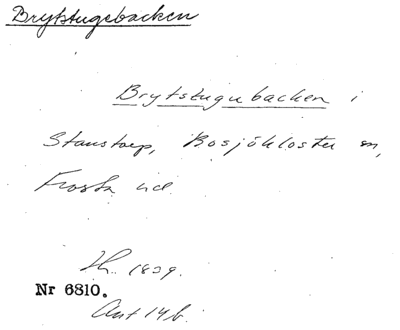 Brytstugebacken
Brytstugubacken i
Stanstorp, Bosjökloster sn,
Frosta hd.
1839.
Nr 6810.
Ant 14b.